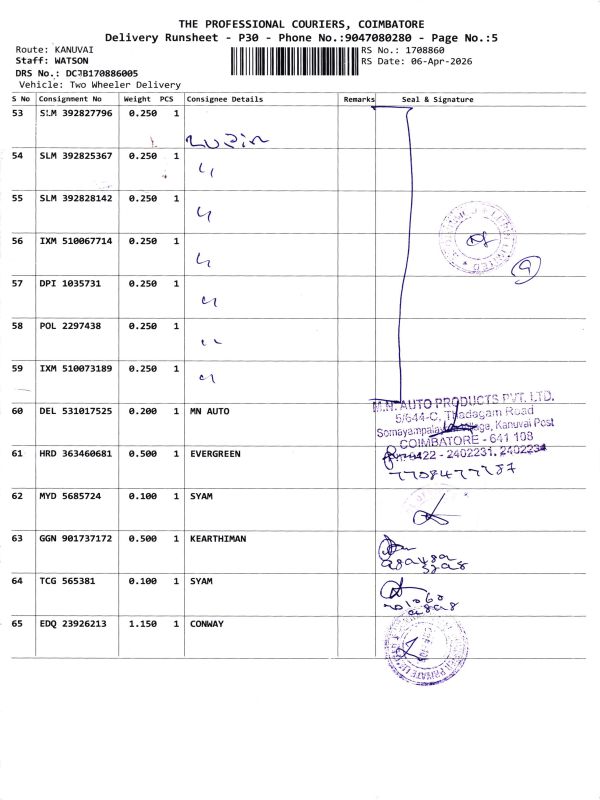 THE PROFESSIONAL COURIERS, COIMBATORE
Delivery Runsheet - P30 - Phone No.:9047080280 - Page No.:5
Route: KANUVAI
RS No.: 1708860
Staff: WATSON
RS Date: 06-Apr-2026
DRS No.:
Vehicle: Two Wheeler Delivery
S No Consignment No Weight PCS Consignee Details Remarks Seal & Signature
53 SLM 392827796 0.250 1
54 SLM 392825367 0.250 1
55 SLM 392828142 0.250 1
56 IXM 510067714 0.250 1
57 DPI 1035731 0.250 1
58 POL 2297438 0.250 1
59 IXM 510073189 0.250 1
60 DEL 531017525 0.200 1 MN AUTO
M.N. AUTO PRODUCTS PVT. LTD.
5/644-C, Thadagam Road
Kanuvai Post
COIMBATORE - 641 108
0422 - 2402231, 2402234
61 HRD 363460681 0.500 1 EVERGREEN
62 MYD 5685724 0.100 1 SYAM
63 GGN 901737172 0.500 1 KEARTHIMAN
64 TCG 565381 0.100 1 SYAM
65 EDQ 23926213 1.150 1 CONWAY